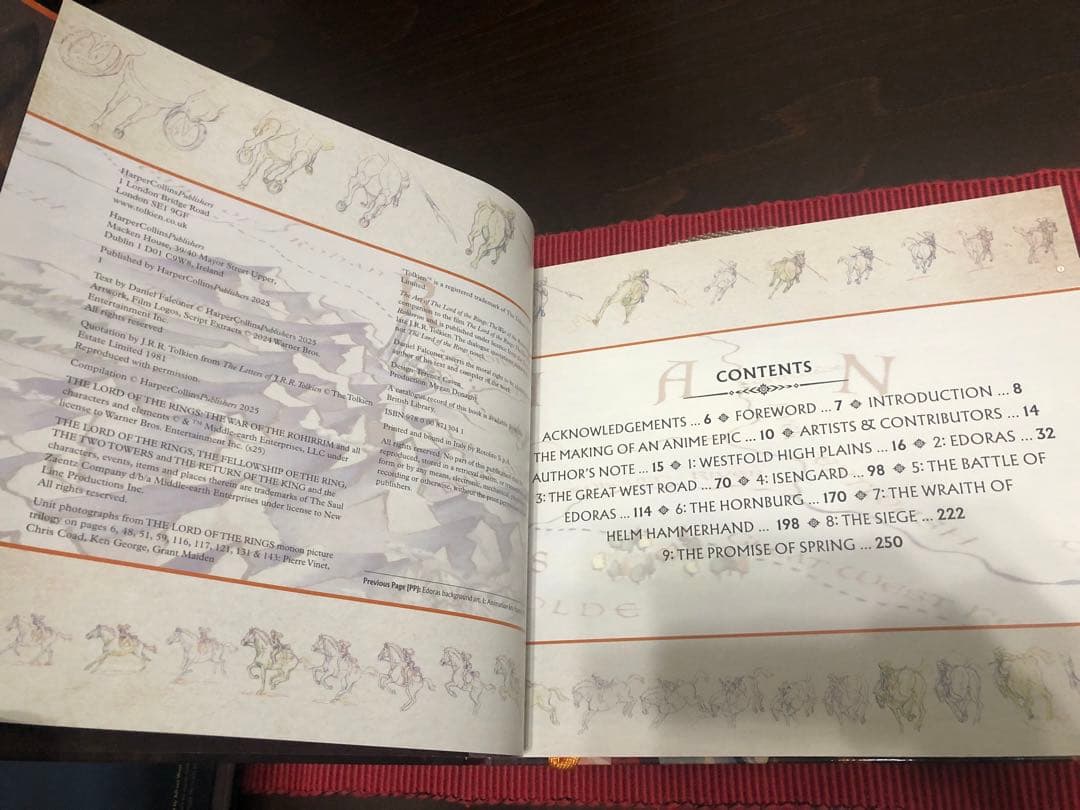 HarperCollinsPublishers
1 London Bridge Road
London SE1 9GF
www.tolkien.co.uk
HarperCollinsPublishers
Macken House, 39/40 Mayor Street Upper,
Dublin 1 D01 C9W8, Ireland
Published by HarperCollinsPublishers 2025
1
Text by Daniel Falconer © HarperCollinsPublishers 2025
Artwork, Film Logos, Script Extracts © 2024 Warner Bros.
Entertainment Inc.
All rights reserved
Quotation by J.R.R. Tolkien from The Letters of J.R.R. Tolkien © The Tolkien
Estate Limited 1981
Reproduced with permission.
Compilation © HarperCollinsPublishers 2025
THE LORD OF THE RINGS: THE WAR OF THE ROHIRRIM and all
characters and elements © & ™ Middle-earth Enterprises, LLC under
license to Warner Bros. Entertainment Inc. (s25)
THE LORD OF THE RINGS, THE FELLOWSHIP OF THE RING,
THE TWO TOWERS and THE RETURN OF THE KING and the
characters, events, items and places therein are trademarks of The Saul
Zaentz Company d/b/a Middle-earth Enterprises under license to New
Line Productions Inc.
All rights reserved.
Unit photographs from THE LORD OF THE RINGS motion picture
trilogy on pages 6, 48, 51, 59, 116, 117, 121, 131 & 143: Pierre Vinet,
Chris Coad, Ken George, Grant Maiden
'Tolkien'® is a registered trademark of The
Limited
The Art of The Lord of the Rings: The War of the
Rohirrim
companion to the film The Lord of the Rings
and is published under license from
late J.R.R. Tolkien. The dialogue
not The Lord of the Rings novel.
Daniel Falconer asserts the moral right to be
author of his text and compiler of the work
Design: Terence Caven
Production:
A catalogue record of this book is available
British Library.
ISBN 978 0 00
Printed and bound in Italy by Rotolito S.p.A.
All rights reserved. No part of this
reproduced, stored in a retrieval system, or
form or by any means, electronic, mechanical,
recording or otherwise, without the prior
publishers.
Previous Page [PP]: Edoras background art.
A N
CONTENTS
ACKNOWLEDGEMENTS ... 6 FOREWORD ... 7 INTRODUCTION ... 8
THE MAKING OF AN ANIME EPIC ... 10 ARTISTS & CONTRIBUTORS ... 14
AUTHOR'S NOTE ... 15 1: WESTFOLD HIGH PLAINS ... 16 2: EDORAS ... 32
3: THE GREAT WEST ROAD ... 70 4: ISENGARD ... 98 5: THE BATTLE OF
EDORAS ... 114 6: THE HORNBURG ... 170 7: THE WRAITH OF
HELM HAMMERHAND ... 198 8: THE SIEGE ... 222
9: THE PROMISE OF SPRING ... 250
OLDE